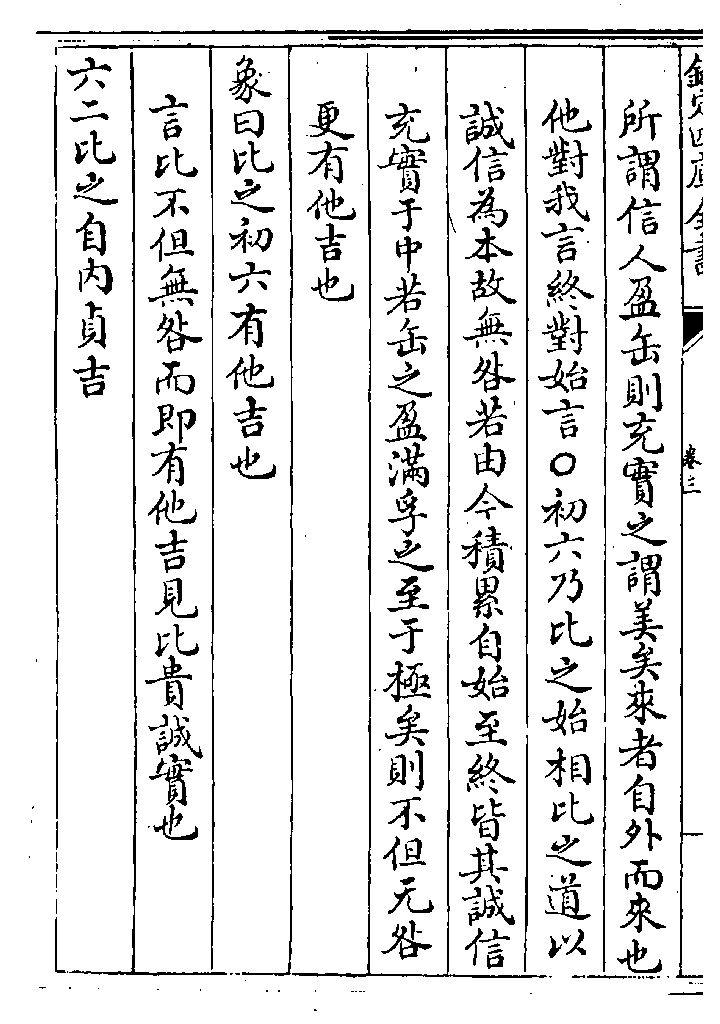 欽定四庫全書
卷三
所謂信人盈缶則充實之謂美矣來者自外而來也
他對我言終對始言○初六乃比之始相比之道以
誠信為本故無咎若由今積累自始至終皆其誠信
充實于中若缶之盈滿孚之至于極矣則不但无咎
更有他吉也
象曰比之初六有他吉也
言比不但無咎而即有他吉見比貴誠實也
六二比之自内貞吉